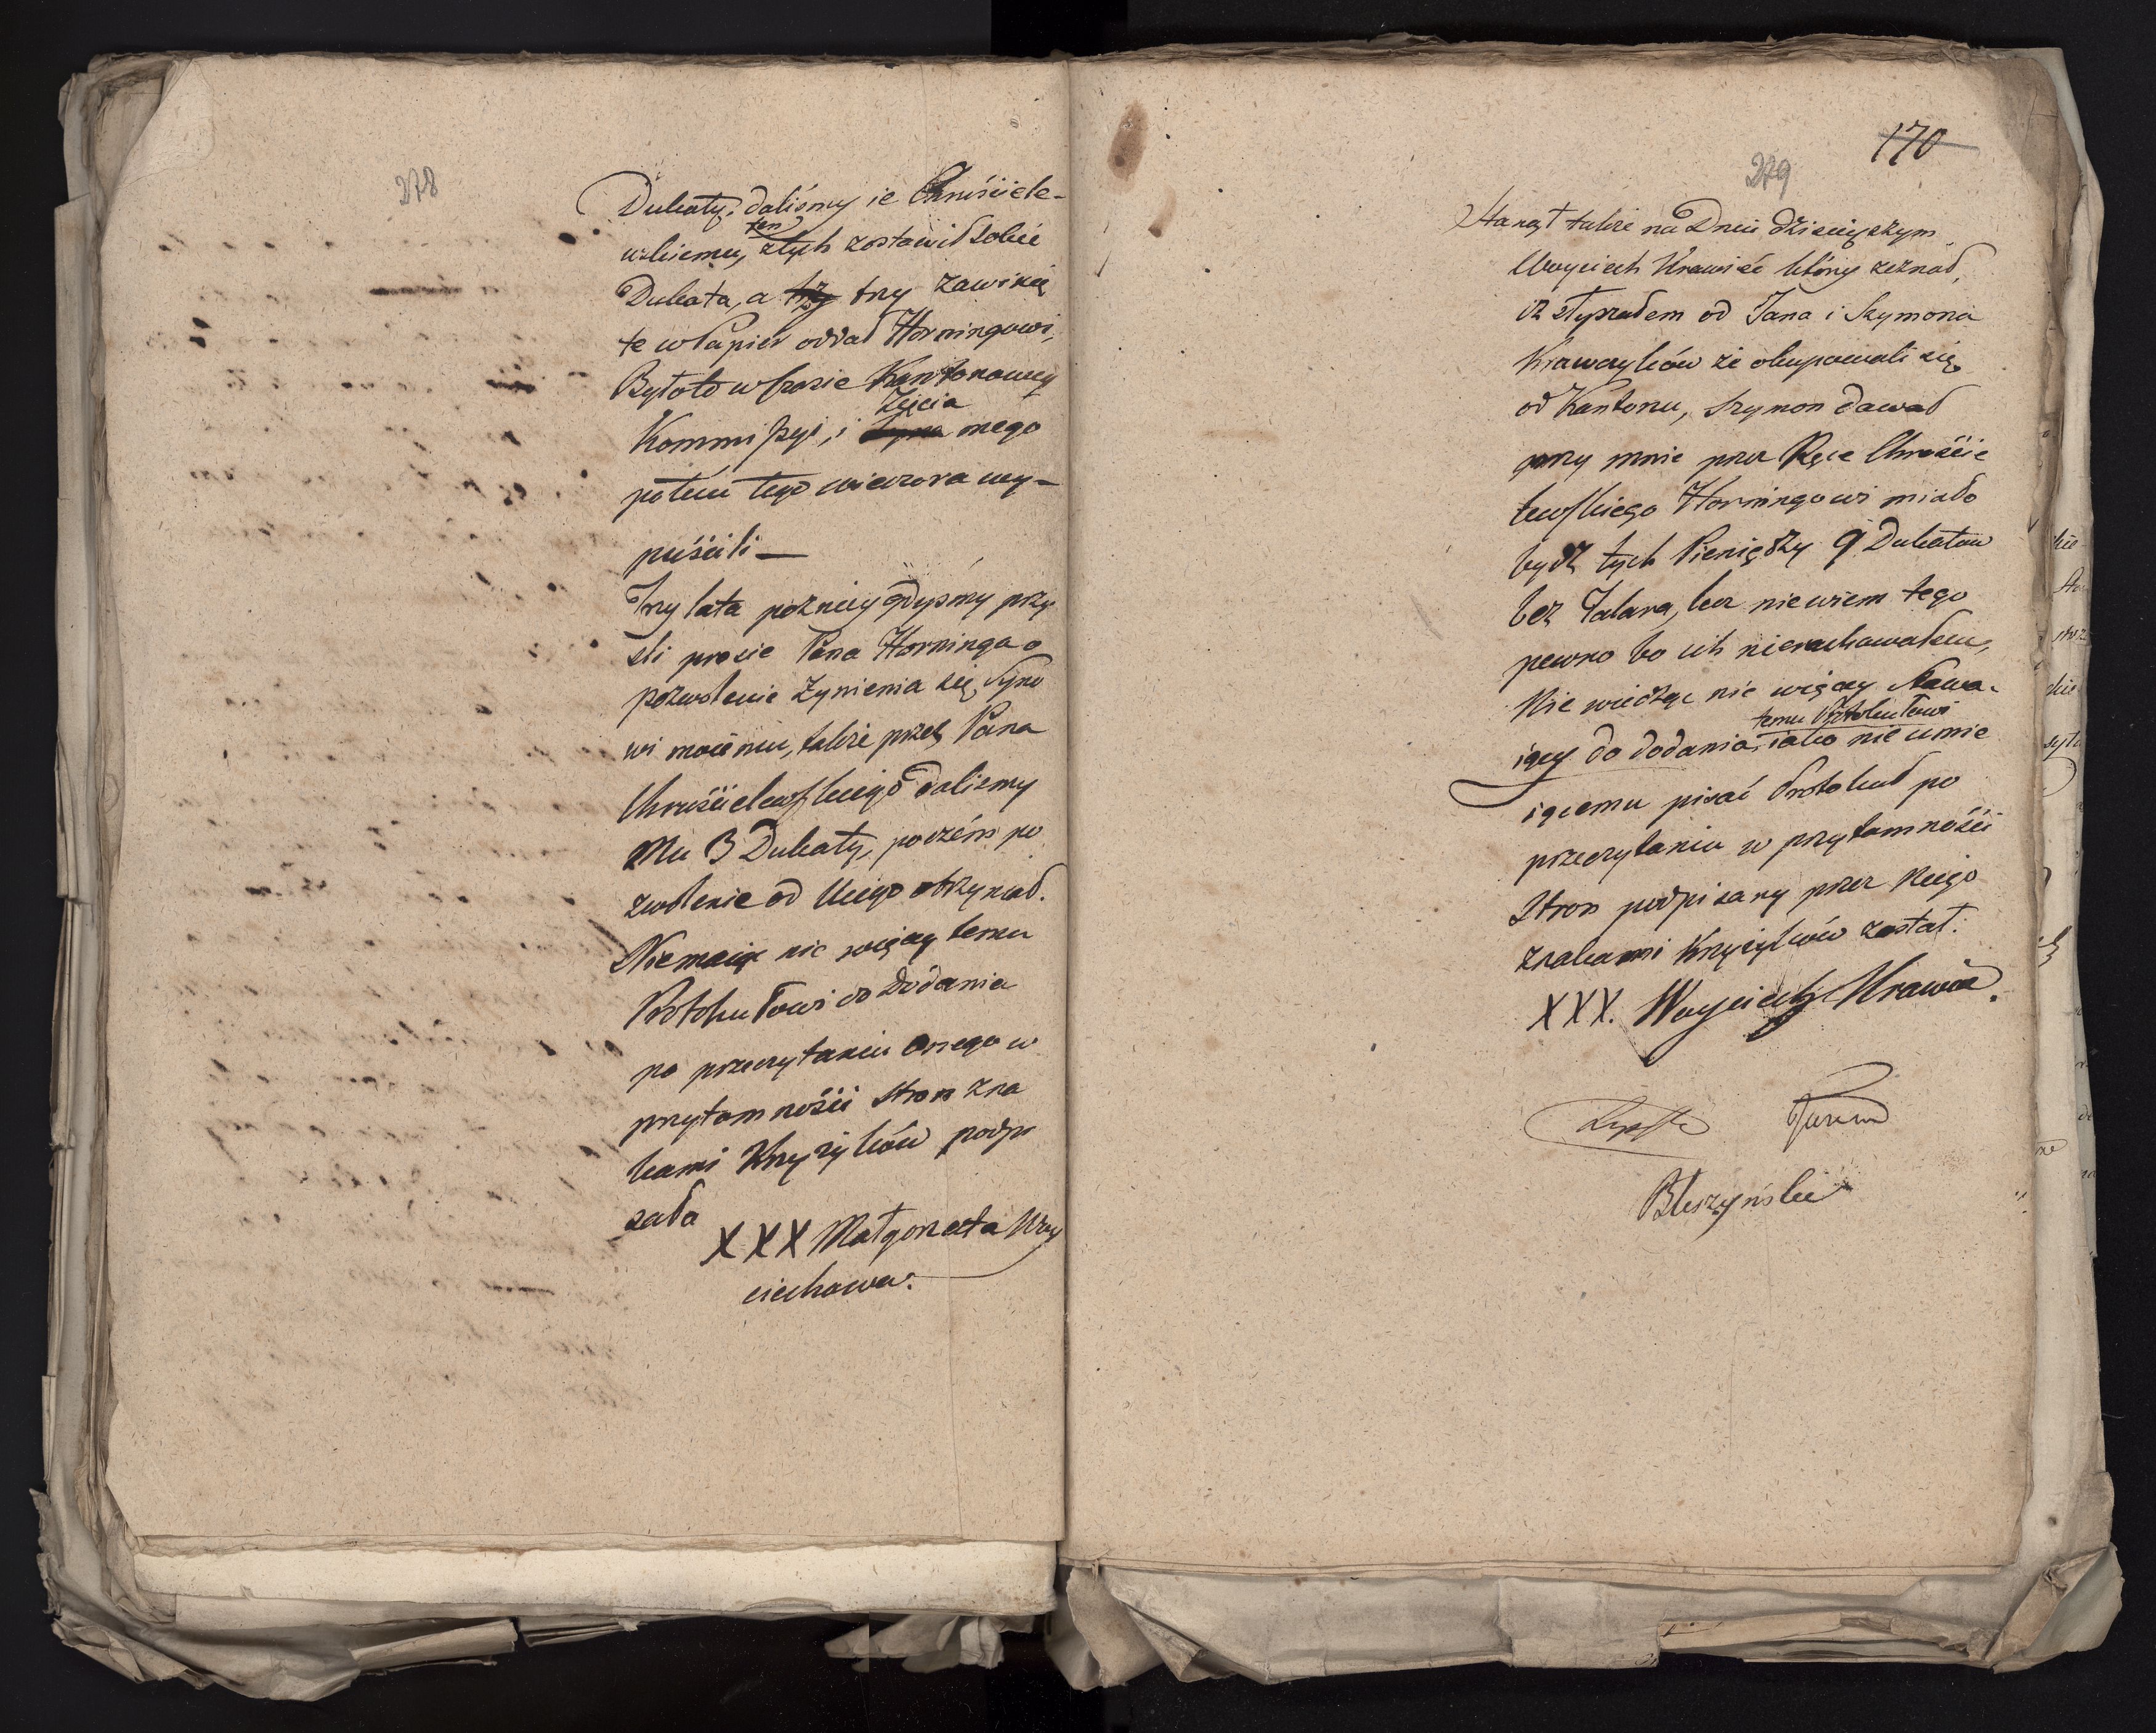 278
Dukaty, daliśmy ie Chruściele-
wskiemu, ten z tych zostawił sobie
Dukata, a trzy try zawinię
te w Papier oddał Horningowi,
Było to w czasie Kantonowey
Kommissyi, i Zięcia mego
potem tego wieczora wy-
puścili —
Trzy lata pozniey gdysmy przy
szli prosie Pana Horninga o
pozwolenie Zynienia się Syno
wi moiemu, także przez Pana
Chruścielewskiego dalismy
Mu 3 Dukaty, poczém po
zwolenie od Niego otrzymał.
Niemaiąc nic więcey temu
Protokułowi do Dodania
po przeczytaniu onego w
przytomności Stron zna
kami Krzyżyków podpi
sała
XXX Małgorzata Woy
ciechowa.
170
279
Stanął także na Dniu dzisieyszym
Woyciech Krawiec który zeznał,
iż słyszałem od Jana i Szymona
Krawczyków że okupowali się
od Kantonu, Szymon dawał
przy mnie przez Ręce Chruście
lewskiego Horningowi miało
bydź tych Pieniędzy 9 Dukatow
bez Talara, lecz nie wiem tego
pewno bo ich nierachowałem,
Nie wiedząc nic więcey Stawa-
iący do dodania temu Protokułowi iako nie umie
iącemu pisać Protokuł po
przeczytaniu w przytomności
Stron podpisany przez Niego
znakami Krzyżyków został.
XXX. Woyciech Krawiec.
Bleszyński